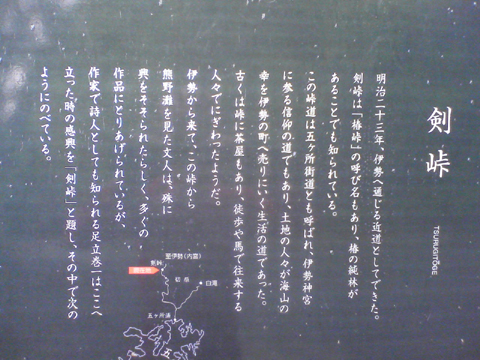 剣峠
TSURUGITŌGE
明治二十三年、伊勢へ通じる近道としてできた。
剣峠は「椿峠」の呼び名もあり、椿の純林が
あることでも知られている。
この峠道は五ケ所街道とも呼ばれ、伊勢神宮
に参る信仰の道でもあり、土地の人々が海山の
幸を伊勢の町へ売りにいく生活の道であった。
古くは峠に茶屋もあり、徒歩や馬で往来する
人々でにぎわったようだ。
伊勢から来て、この峠から
熊野灘を見た文人は、殊に
興をそそられたらしく、多くの
作品にとりあげられているが、
作家で詩人としても知られる足立巻一はここへ
立った時の感興を「剣峠」と題し、その中で次の
ようにのべている。
至伊勢(内宮)
剣峠
現在地
切原
白滝
五ケ所浦